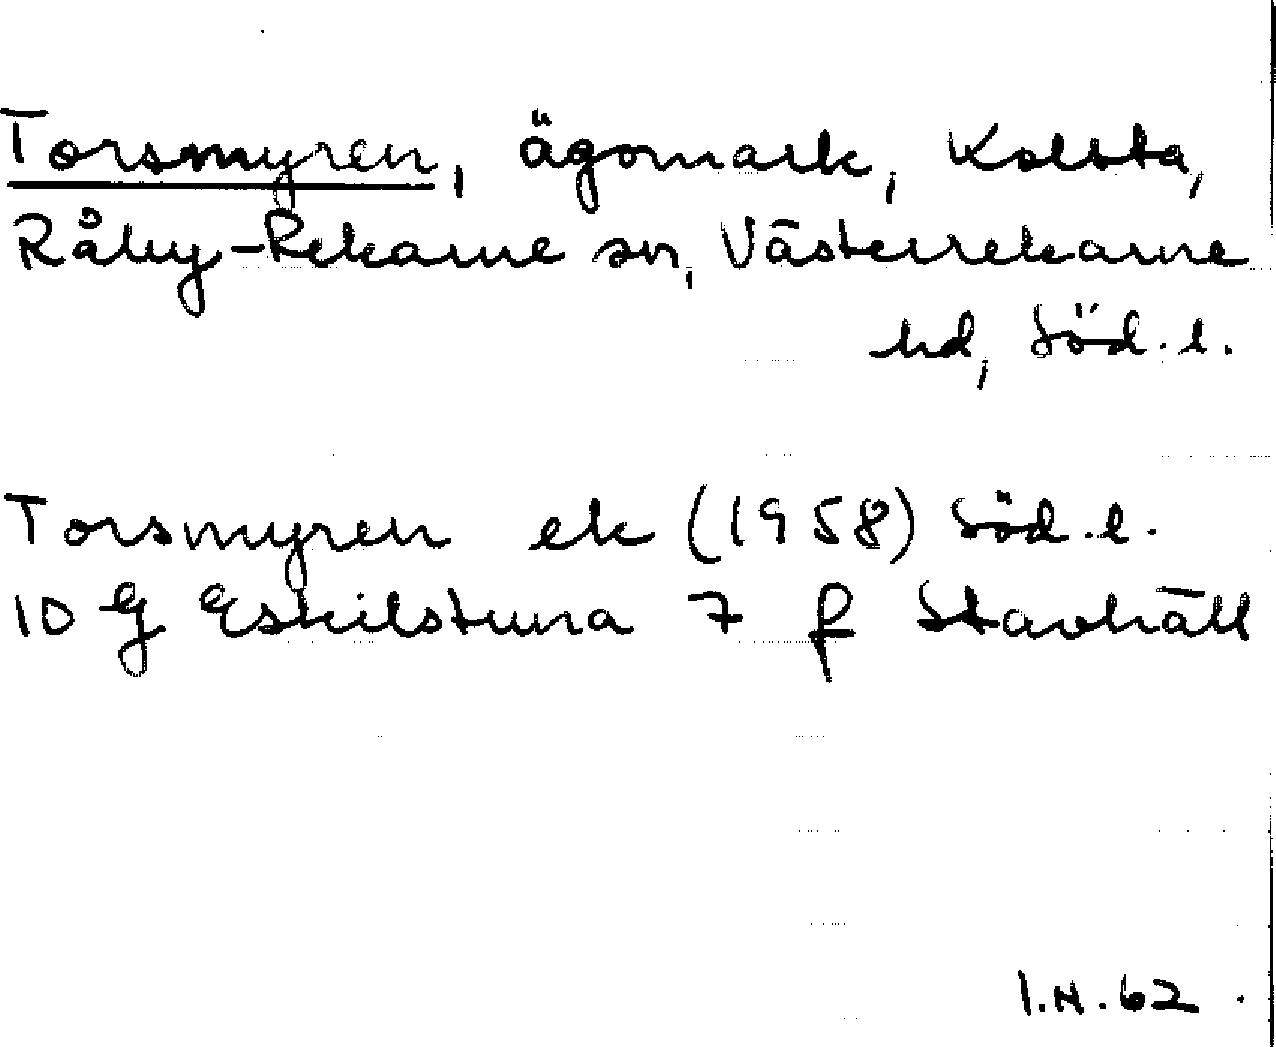 Torsmyren, ägomark, Kolsta,
Råby-Rekarne sn, Västerrekarne
hd, Söd.l.
Torsmyren ek (1958) Söd.l.
10 G Eskilstuna 7 f Stavhäll
I.N.62